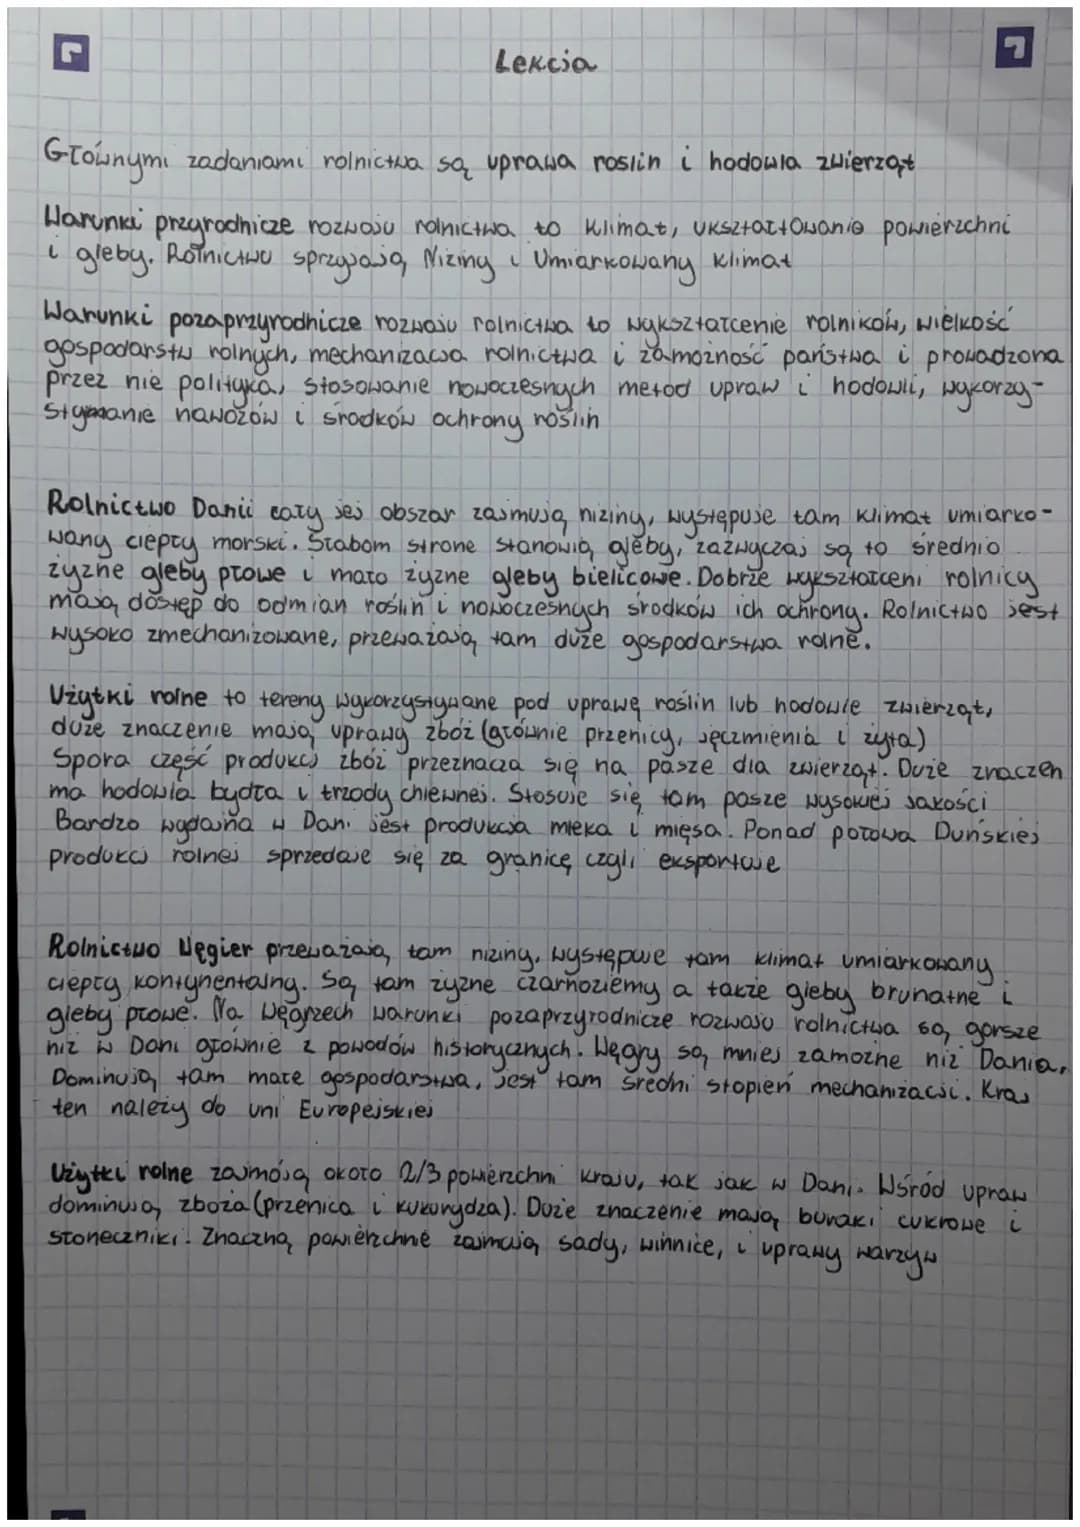 Lekcja
Głównymi zadaniami rolnictwa są uprawa roslin i hodowla zwierząt
Warunki przyrodnicze rozwoju rolnictwa to klimat, ukształtowanie powierzchni
i gleby. Rolnictwu sprzyjają Niziny i Umiarkowany klimat
Warunki pozaprzyrodnicze rozwoju rolnictwa to wykształcenie rolników, wielkość
gospodarstw rolnych, mechanizacja rolnictwa i zamożność państwa i prowadzona
przez nie polityka, stosowanie nowoczesnych metod upraw i hodowli, wykorzy-
stywanie nawozów i srodków ochrony roślin
Rolnictwo Danii cały jej obszar zajmują niziny, występuje tam klimat umiarko-
wany ciepły morski. Słabom strone stanowią gleby, zazwyczaj są to średnio
żyzne gleby płowe i mało żyzne gleby bielicowe. Dobrze wykształceni rolnicy
mają dostęp do odmian roślin i nowoczesnych środków ich ochrony. Rolnictwo jest
wysoko zmechanizowane, przeważają tam duże gospodarstwa rolne.
Użytki rolne to tereny wykorzystywane pod uprawę roślin lub hodowle zwierząt,
duże znaczenie mają uprawy zbóż (głównie przenicy, jęczmienia i żyta)
Spora część produkcj zbóż przeznacza się na pasze dla zwierząt. Duże znaczen
ma hodowla bydła i trzody chlewnej. Stosuje się tam pasze wysokiej jakości
Bardzo wydajna w Dani jest produkcja mleka i mięsa. Ponad połowa Duńskiej
produkcj rolnej sprzedaje się za granicę czyli eksportuje
Rolnictwo Węgier przeważają tam niziny, występuje tam klimat umiarkowany
ciepły kontynentalny. Są tam żyzne czarnoziemy a także gleby brunatne i
gleby płowe. Na Węgrzech warunki pozaprzyrodnicze rozwoju rolnictwa są gorsze
niż w Dani głównie z powodów historycznych. Węgry są mniej zamożne niż Dania,
Dominują tam małe gospodarstwa, jest tam średni stopień mechanizacji. Kraj
ten należy do uni Europejskiej
Użytki rolne zajmóją około 2/3 powierzchni kraju, tak jak w Dani. Wśród upraw
dominują zboża (przenica i kukurydza). Duże znaczenie mają buraki cukrowe i
słoneczniki. Znaczną powierzchnię zajmują sady, winnice, i uprawy warzyw